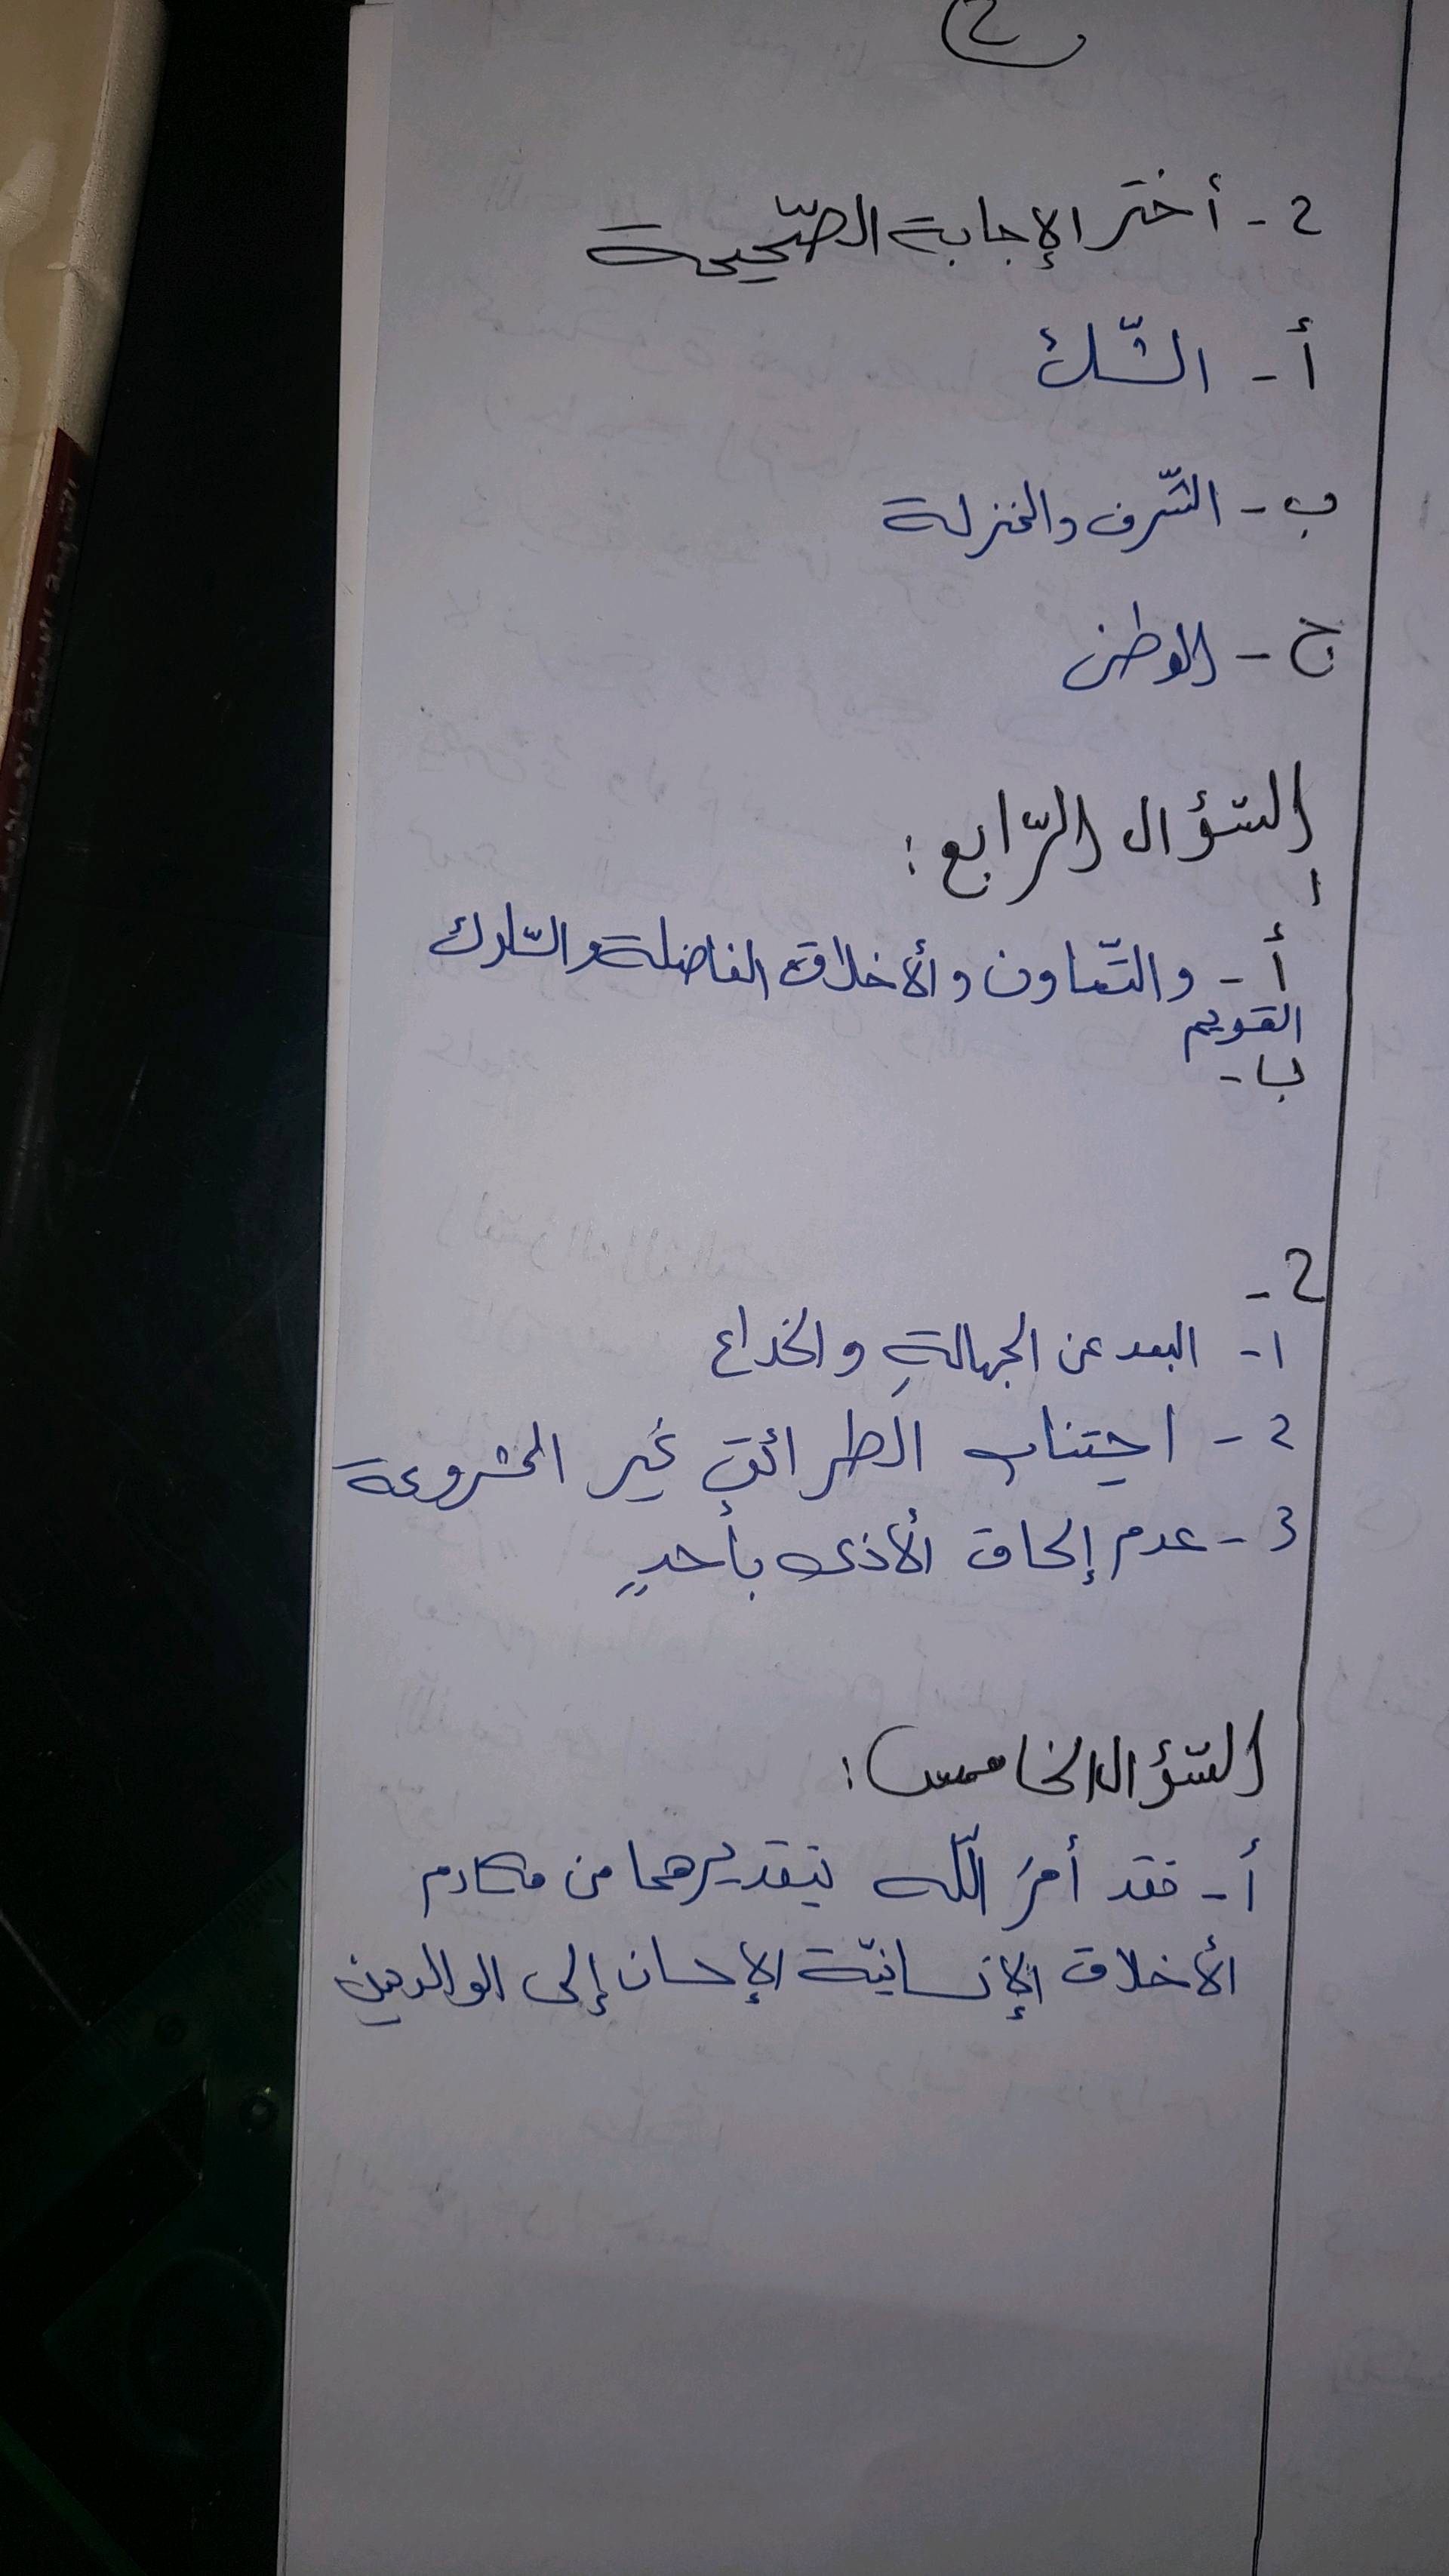 2
2 - أختر الإجابة الصّحيحة
أ - الشّك
ب - الشّرف والمنزلة
ج - الوطن
السّؤال الرّابع :
1
أ - والتّعاون والأخلاق الفاضلة والسّلوك
القويم
ب -
2 -
1 - البعد عن الجهالةِ والخداع
2 - اجتناب الطرائقِ غير المشروعة
3 - عدم إلحاق الأذى بأحدٍ
السّؤال الخامس :
أ - فقد أمرَ اللّه بتقديرهما من مكارم
الأخلاق الإنسانيّة الإحسان إلى الوالدين